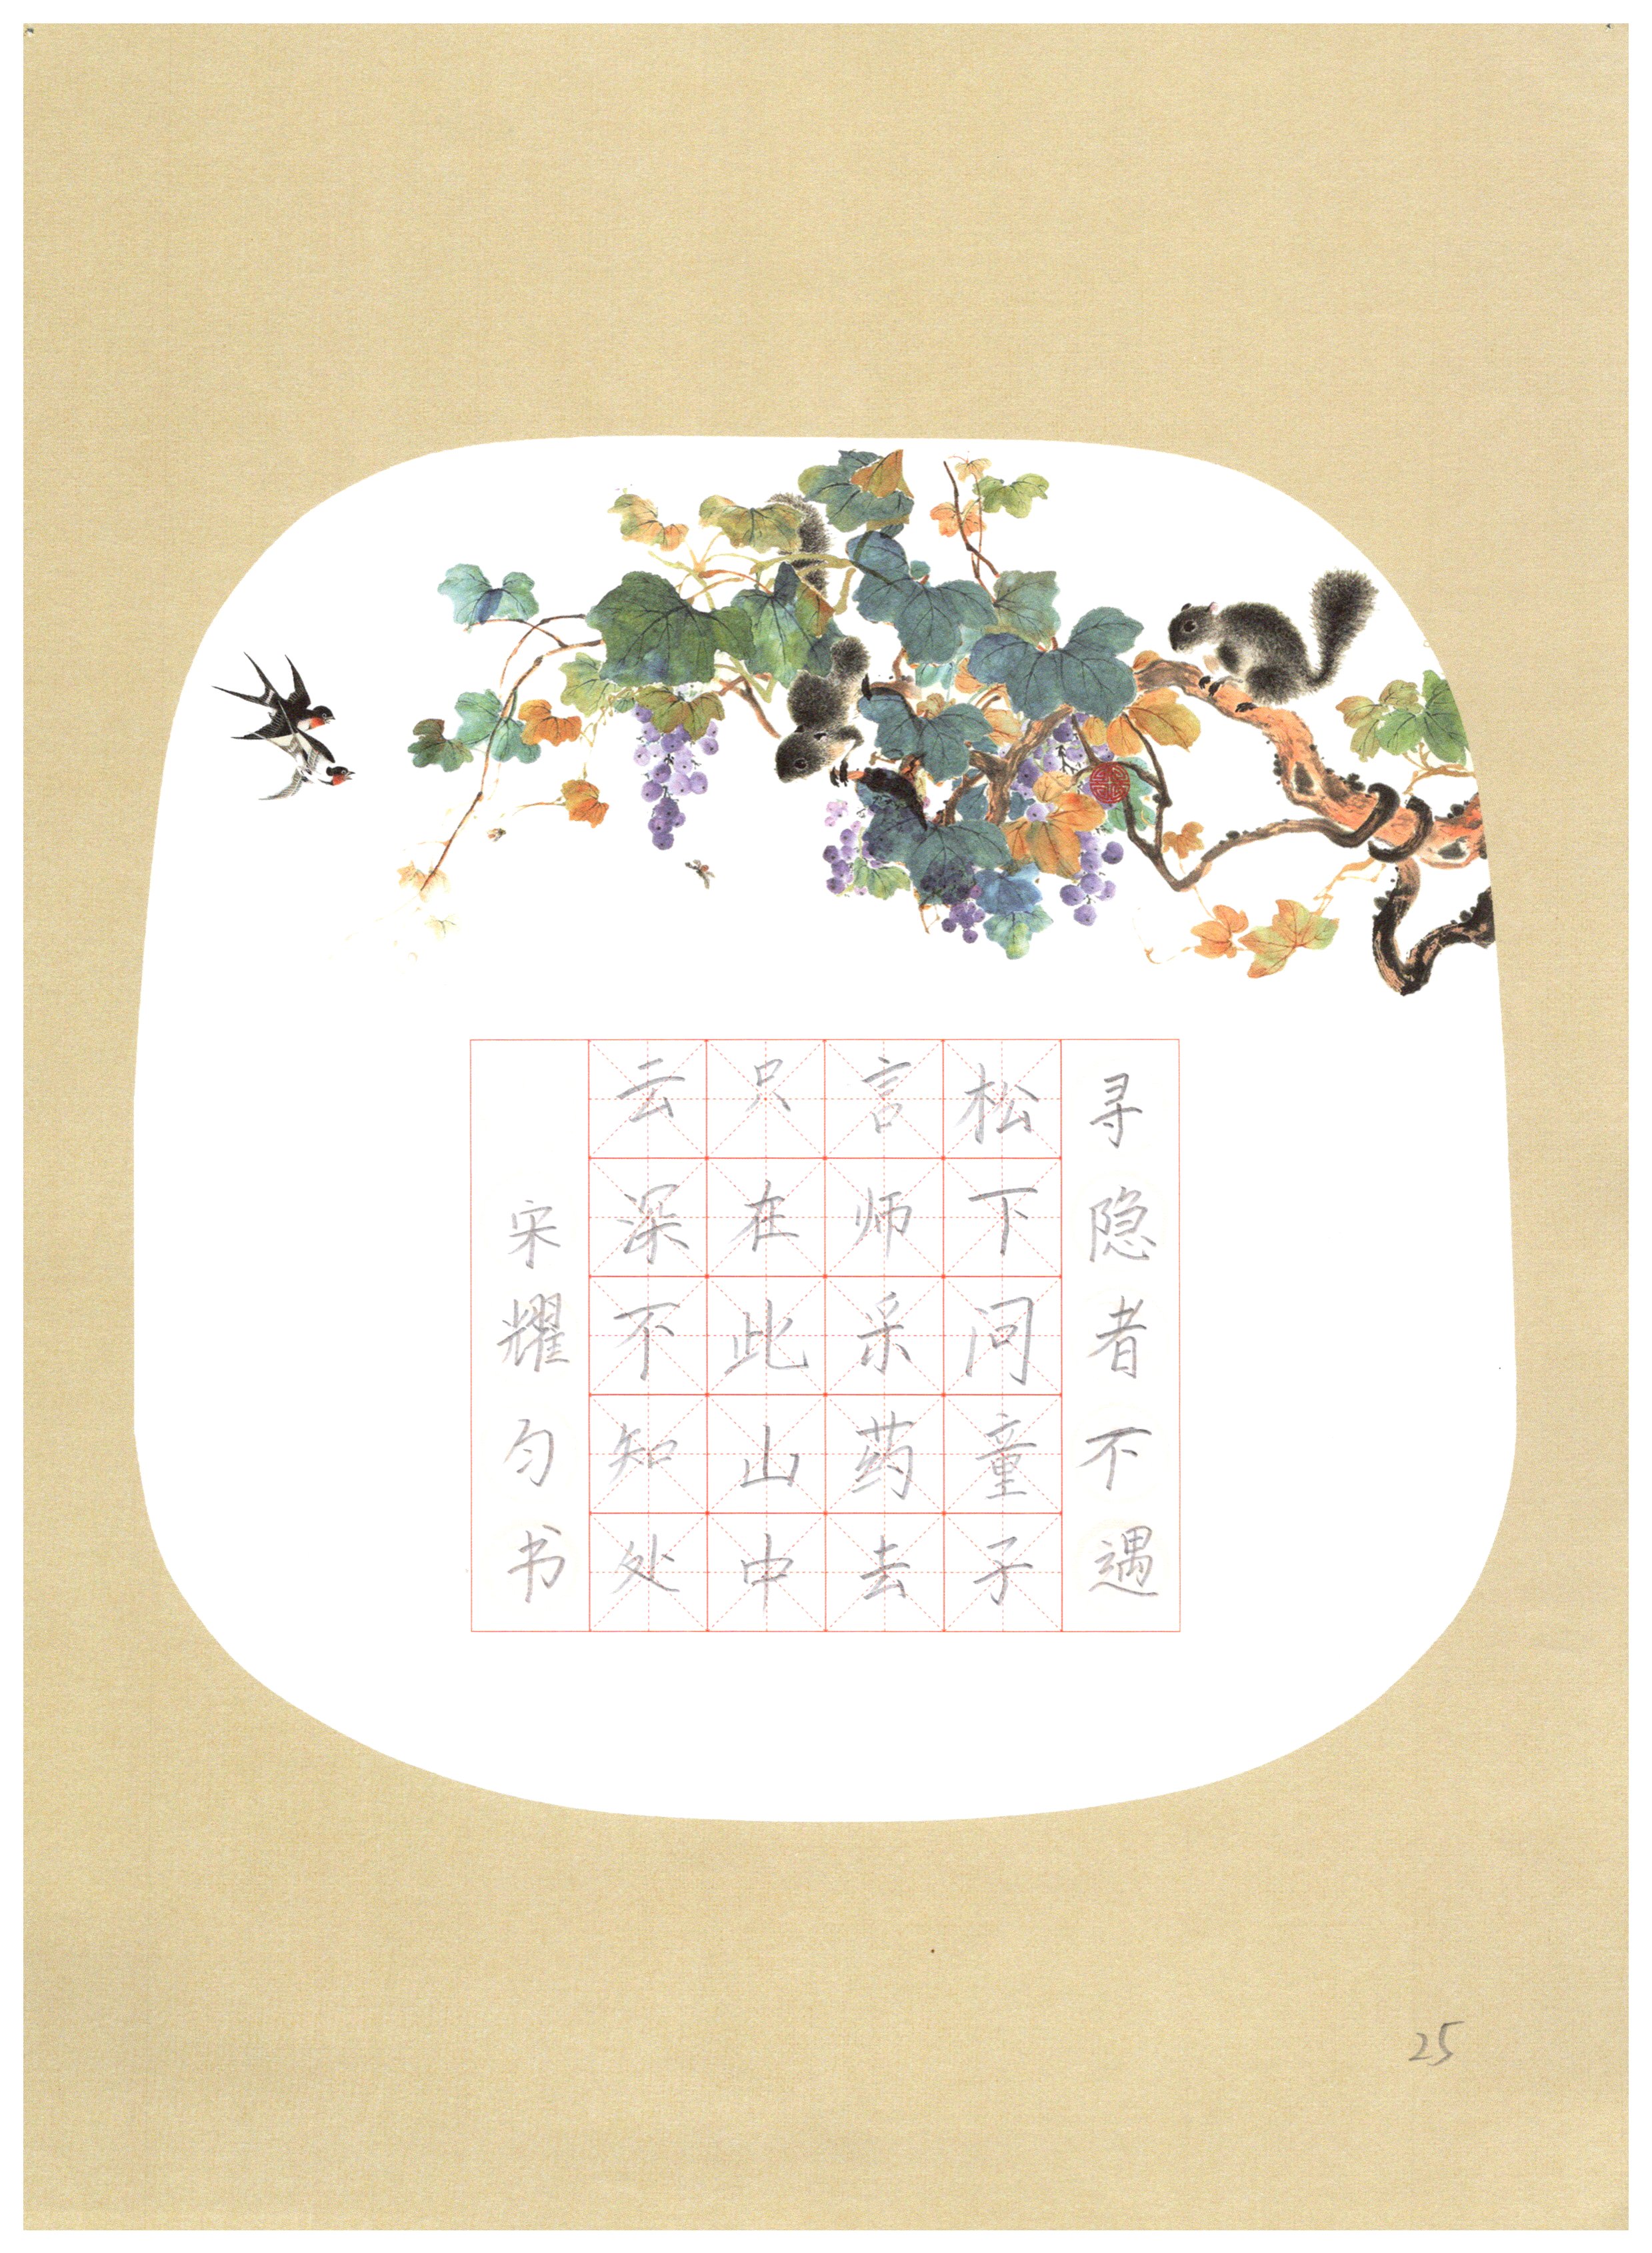 寻隐者不遇
松下问童子
言师采药去
只在此山中
云深不知处
宋耀匀书
25